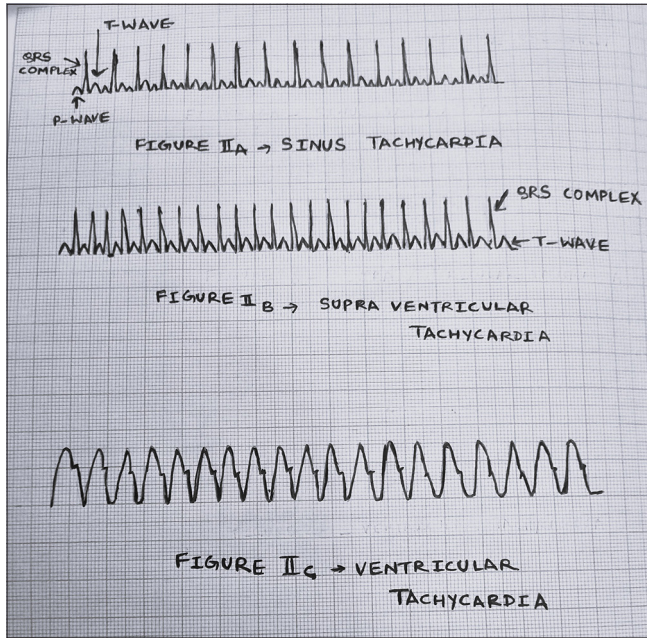 T-WAVE
QRS
COMPLEX
P-WAVE
FIGURE IIA → SINUS TACHYCARDIA
QRS COMPLEX
T-WAVE
FIGURE IIB → SUPRA VENTRICULAR
TACHYCARDIA
FIGURE IIC → VENTRICULAR
TACHYCARDIA